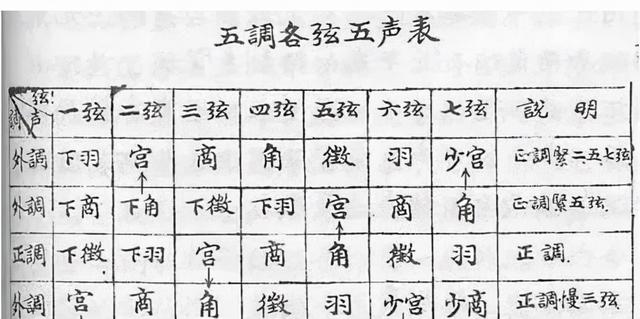 五調各弦五声表
弦 調 声 一弦 二弦 三弦 四弦 五弦 六弦 七弦 説明
外調 下羽 宫 商 角 徵 羽 少宫 正調緊二五七弦
外調 下商 下角 下徵 下羽 宫 商 角 正調緊五弦
正調 下徵 下羽 宫 商 角 徵 羽 正調
外調 宫 商 角 徵 羽 少宫 少商 正調慢三弦